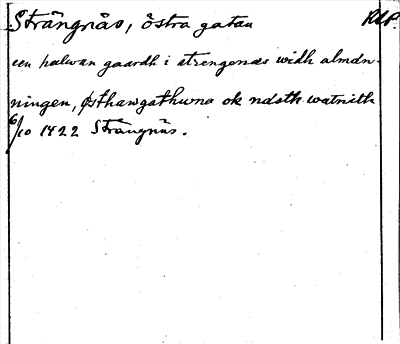 Strängnäs, östra gatan RAP.
een halwan gaardh i strengenæs widh almæn-
ningen, østhawgathuna ok næsth watnith
6/10 1422 Strängnäs.